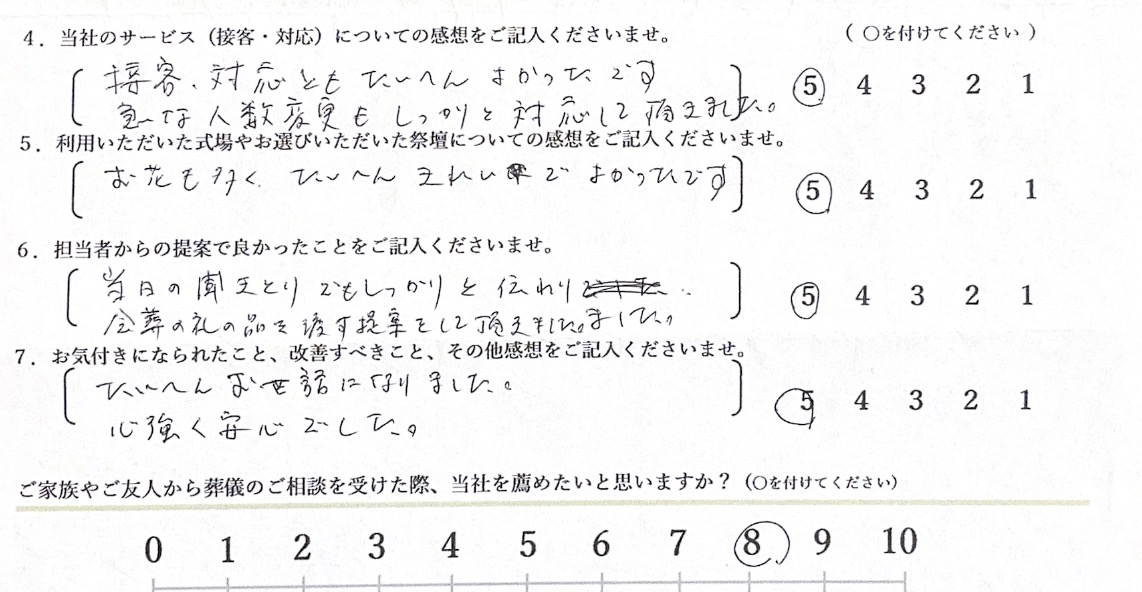 4. 当社のサービス（接客・対応）についての感想をご記入くださいませ。 （ ○を付けてください ）
接客、対応ともたいへんよかったです 5 4 3 2 1
急な人数変更もしっかりと対応して頂きました。
5. 利用いただいた式場やお選びいただいた祭壇についての感想をご記入くださいませ。
お花も多く、たいへんきれいでよかったです 5 4 3 2 1
6. 担当者からの提案で良かったことをご記入くださいませ。
当日の聞きとりでもしっかりと伝わり 5 4 3 2 1
会葬の礼の品を渡す提案をして頂きました。ました。
7. お気付きになられたこと、改善すべきこと、その他感想をご記入くださいませ。
たいへんお世話になりました。 5 4 3 2 1
心強く安心でした。
ご家族やご友人から葬儀のご相談を受けた際、当社を薦めたいと思いますか？（○を付けてください）
0 1 2 3 4 5 6 7 8 9 10